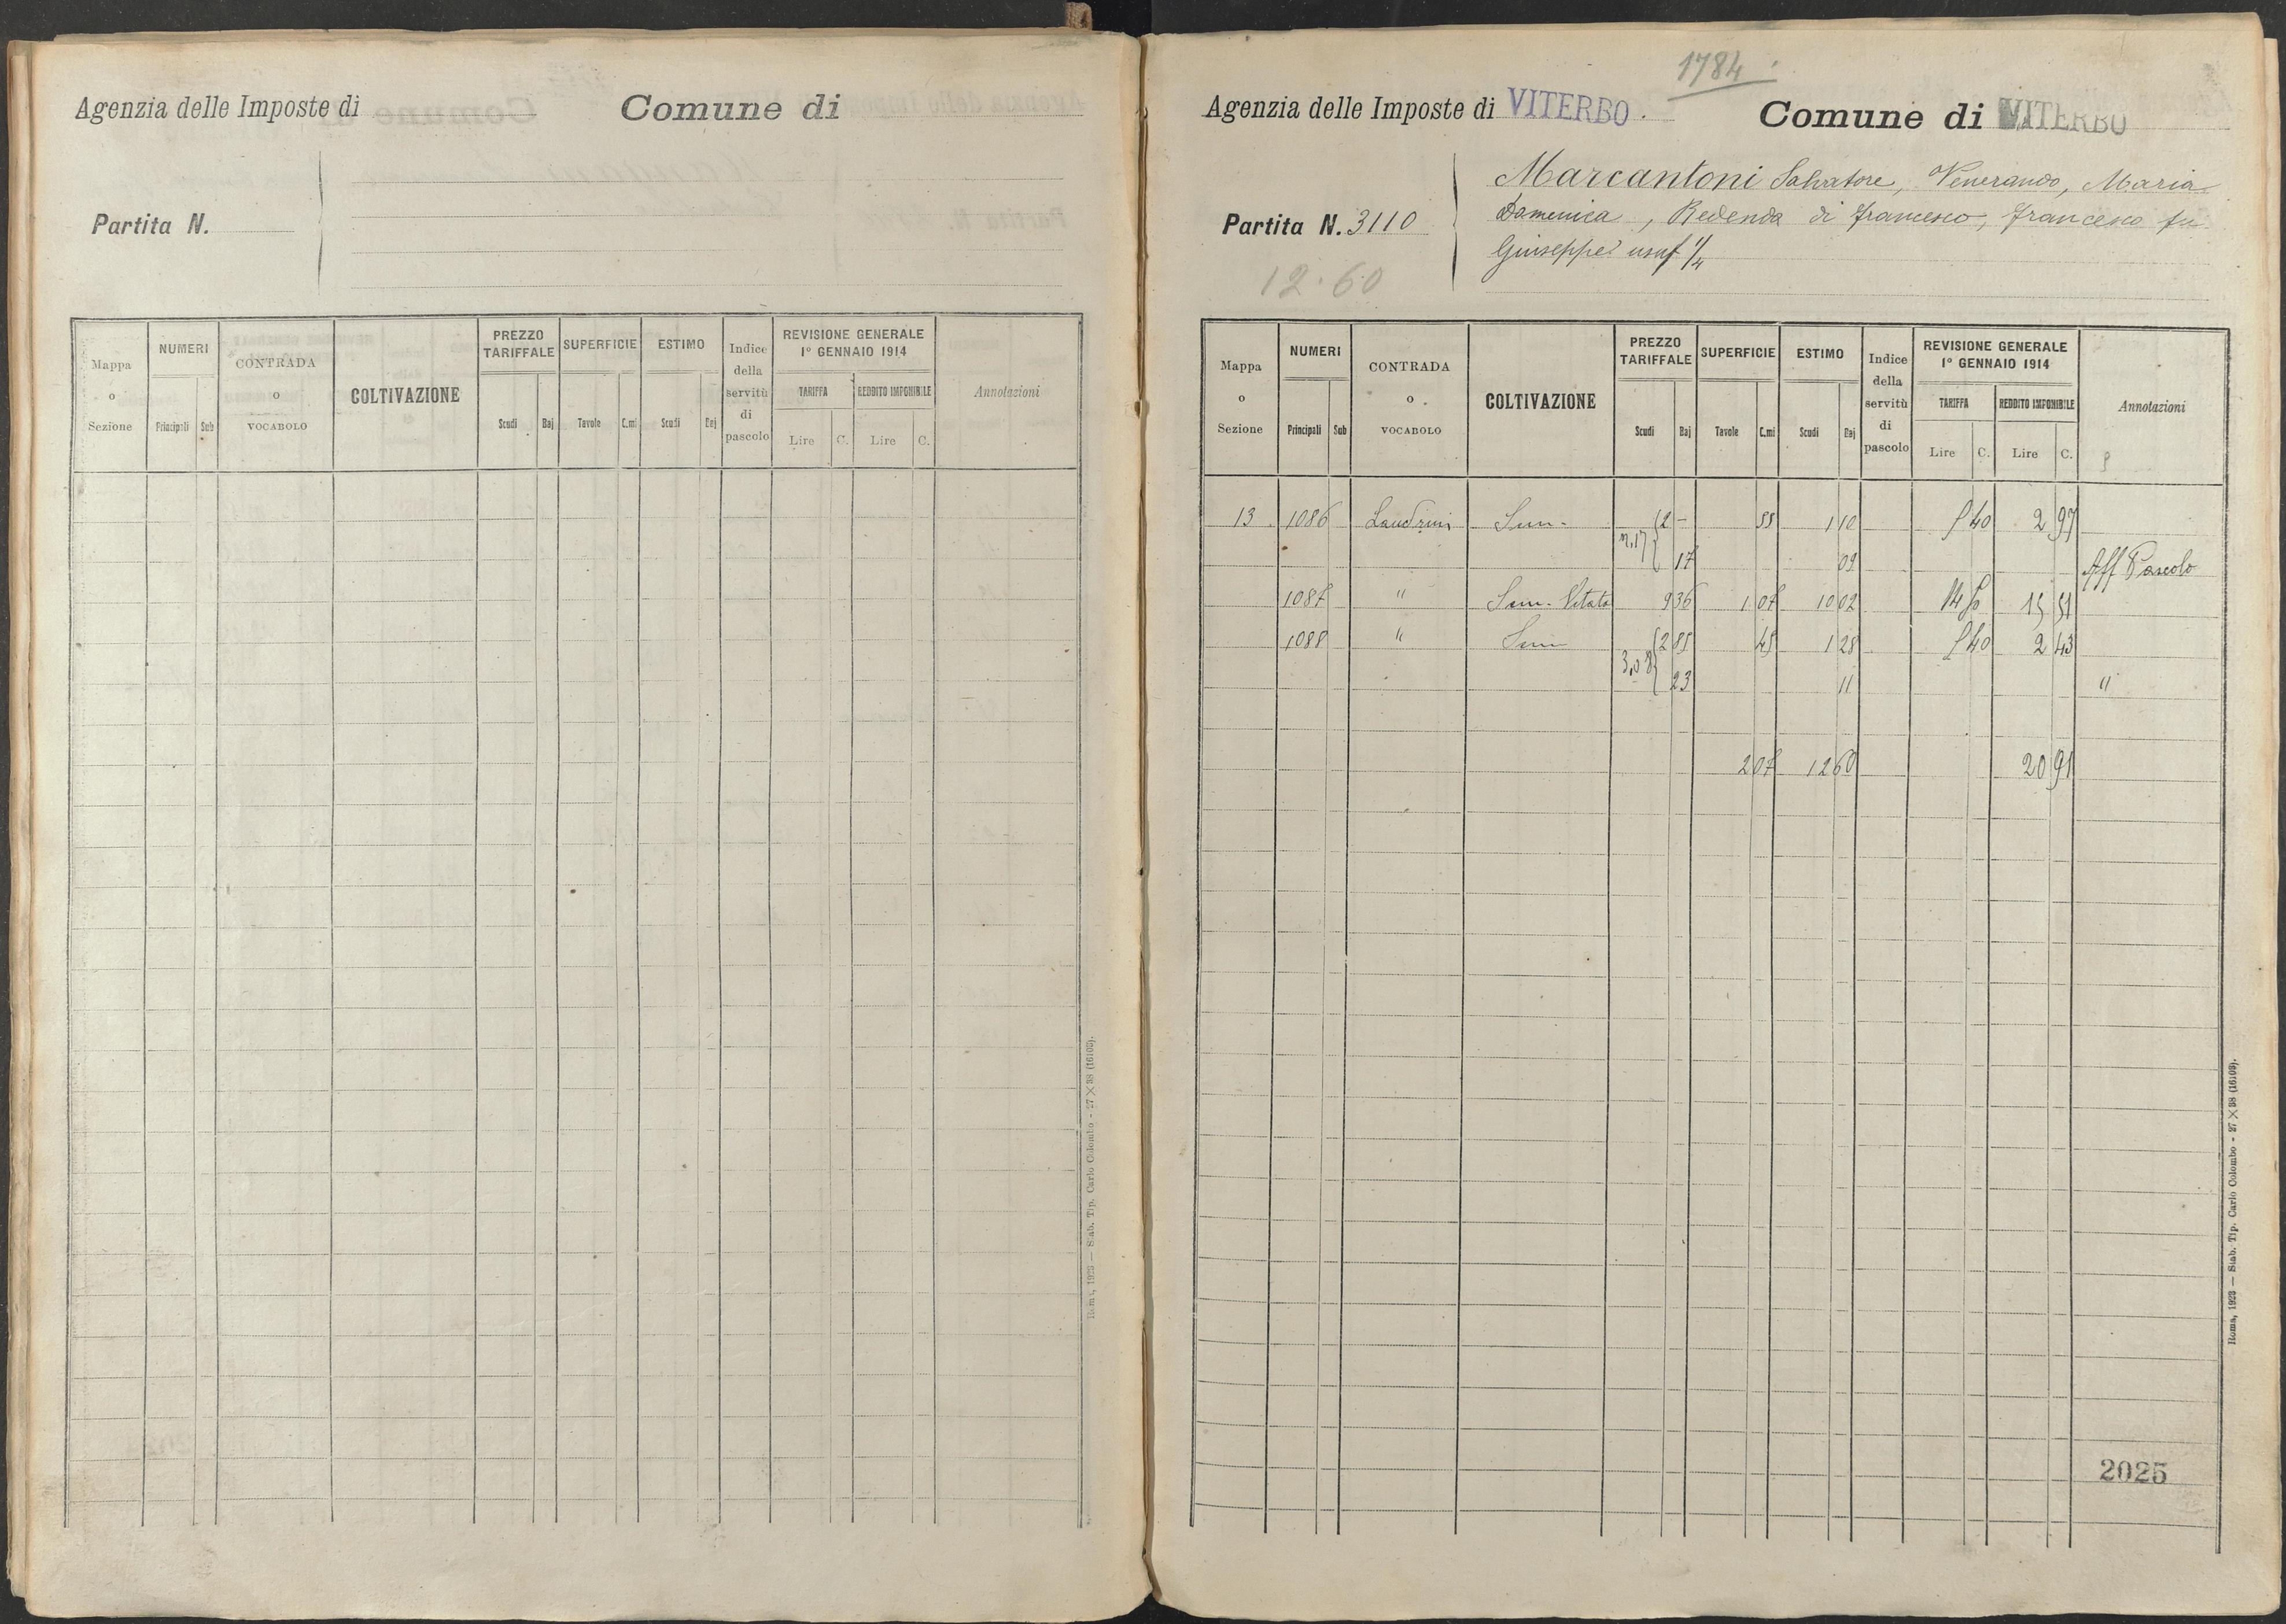 Agenzia delle Imposte di
Comune di
Partita N.
Mappa o Sezione
NUMERI
Principali Sub
CONTRADA o VOCABOLO
COLTIVAZIONE
PREZZO TARIFFALE
Scudi Baj
SUPERFICIE
Tavole C.mi
ESTIMO
Scudi Baj
Indice della servitù di pascolo
REVISIONE GENERALE
1° GENNAIO 1914
TARIFFA
Lire C.
REDDITO IMPONIBILE
Lire C.
Annotazioni
Roma, 1923 — Stab. Tip. Carlo Colombo - 27 × 38 (16103).
1784
Agenzia delle Imposte di VITERBO.
Comune di VITERBO
Partita N. 3110
12.60
Marcantoni Salvatore, Venerando, Maria
Domenica, Redenda di Francesco, Francesco fu
Giuseppe usuf 1/4
Mappa o Sezione
NUMERI
Principali Sub
CONTRADA o VOCABOLO
COLTIVAZIONE
PREZZO TARIFFALE
Scudi Baj
SUPERFICIE
Tavole C.mi
ESTIMO
Scudi Baj
Indice della servitù di pascolo
REVISIONE GENERALE
1° GENNAIO 1914
TARIFFA
Lire C.
REDDITO IMPONIBILE
Lire C.
Annotazioni
13 1086 Sem. 2 - 55 1 10 5 40 2 97
17 09 Aff Pascolo
1087 " Sem. Vitato 9 36 1 07 10 02 14 50 15 51
1088 " Sem 2 85 45 1 28 5 40 2 43
3,08 23 11 "
2 07 12 60 20 91
2025
Roma, 1923 — Stab. Tip. Carlo Colombo - 27 × 38 (16103).